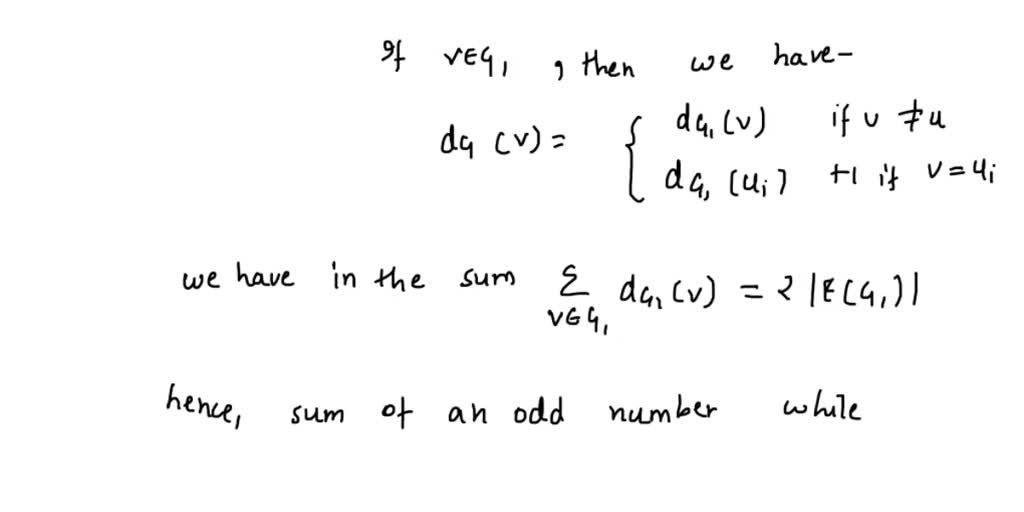 If v∈G₁ , then we have-
dG (v) = { dG₁(v) if v ≠ u
dG₁ (ui) +1 if v = ui
we have in the sum Σ v∈G₁ dG₁(v) = 2 |E(G₁)|
hence, sum of an odd number while